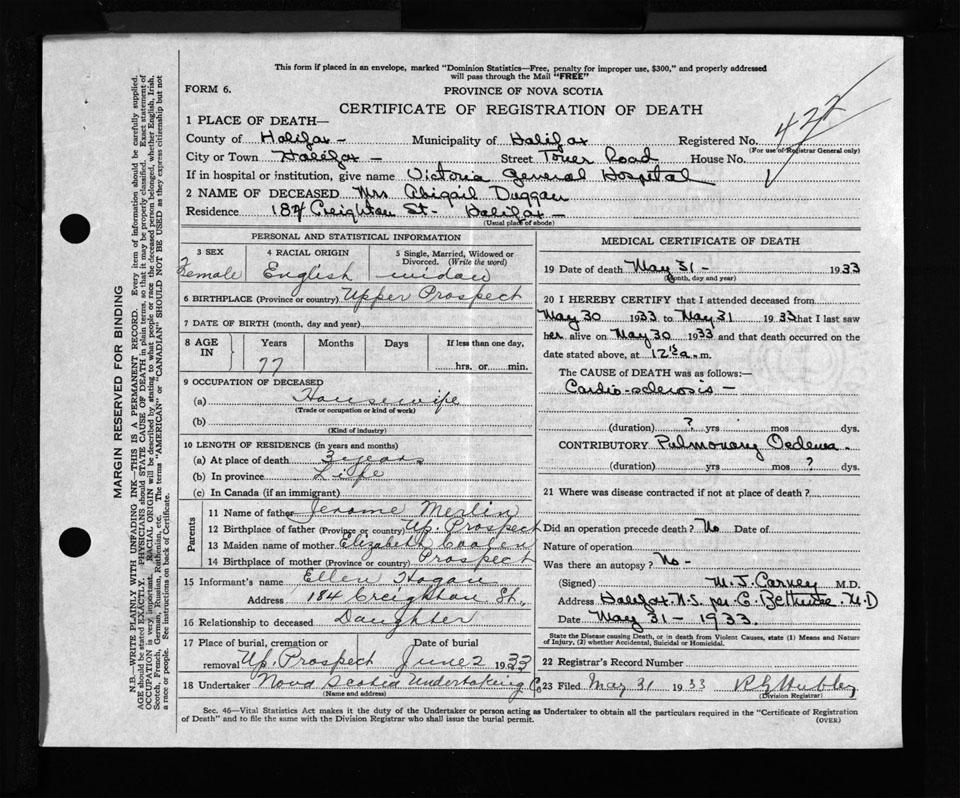 This form if placed in an envelope, marked "Dominion Statistics—Free, penalty for improper use, $300," and properly addressed
will pass through the Mail "FREE"
FORM 6.
PROVINCE OF NOVA SCOTIA
CERTIFICATE OF REGISTRATION OF DEATH
1 PLACE OF DEATH—
County of Halifax - Municipality of Halifax Registered No. 422
(For use of Registrar General only)
City or Town Halifax - Street Tower Road House No.
If in hospital or institution, give name Victoria General Hospital
2 NAME OF DECEASED Mrs Abigail Duggan
Residence 184 Creighton St- Halifax -
(Usual place of abode)
PERSONAL AND STATISTICAL INFORMATION
3 SEX 4 RACIAL ORIGIN 5 Single, Married, Widowed or
Divorced. (Write the word)
Female English widow
6 BIRTHPLACE (Province or country) Upper Prospect
7 DATE OF BIRTH (month, day and year)
8 AGE IN Years Months Days If less than one day,
77 hrs. or min.
9 OCCUPATION OF DECEASED
(a) Housewife
(Trade or occupation or kind of work)
(b)
(Kind of industry)
10 LENGTH OF RESIDENCE (in years and months)
(a) At place of death 3 years
(b) In province Life
(c) In Canada (if an immigrant)
Parents
11 Name of father Jerome Merlin
12 Birthplace of father (Province or country) Up. Prospect
13 Maiden name of mother Elizabeth Coolen
14 Birthplace of mother (Province or country) Prospect
15 Informant's name Ellen Hogan
Address 184 Creighton St.,
16 Relationship to deceased Daughter
17 Place of burial, cremation or Date of burial
removal Up. Prospect June 2 1933
18 Undertaker Nova Scotia Undertaking Co
(Name and address)
MEDICAL CERTIFICATE OF DEATH
19 Date of death May 31 - 1933
(Month, day and year)
20 I HEREBY CERTIFY that I attended deceased from
May 30 1933 to May 31 1933 that I last saw
her alive on May 30 1933 and that death occurred on the
date stated above, at 12 15 a. m.
The CAUSE OF DEATH was as follows:—
Cardio-sclerosis -
(duration) ? yrs mos dys.
CONTRIBUTORY Pulmonary Oedema.
(duration) yrs mos ? dys.
21 Where was disease contracted if not at place of death?
Did an operation precede death? No Date of
Nature of operation
Was there an autopsy? No -
(Signed) M. J. Carney M.D.
Address Halifax N.S. per C. Bethune M.D
Date May 31 - 1933.
State the Disease causing Death, or in death from Violent Causes, state (1) Means and Nature
of Injury, (2) whether Accidental, Suicidal or Homicidal.
22 Registrar's Record Number
23 Filed May 31 1933 R G Hubley
(Division Registrar)
Sec. 46—Vital Statistics Act makes it the duty of the Undertaker or person acting as Undertaker to obtain all the particulars required in the "Certificate of Registration
of Death" and to file the same with the Division Registrar who shall issue the burial permit. (OVER)
MARGIN RESERVED FOR BINDING
N.B.—WRITE PLAINLY WITH UNFADING INK—THIS IS A PERMANENT RECORD. Every item of information should be carefully supplied.
AGE should be stated EXACTLY. PHYSICIANS should STATE CAUSE OF DEATH in plain terms, so that it may be properly classified. Exact statement of
OCCUPATION is very important. RACIAL ORIGIN will be described by stating to what people or race the deceased person belonged, whether English, Irish,
Scotch, French, German, Russian, Ruthenian, etc. The terms "AMERICAN" or "CANADIAN" SHOULD NOT BE USED as they express citizenship but not
a race or people. See instructions on back of Certificate.